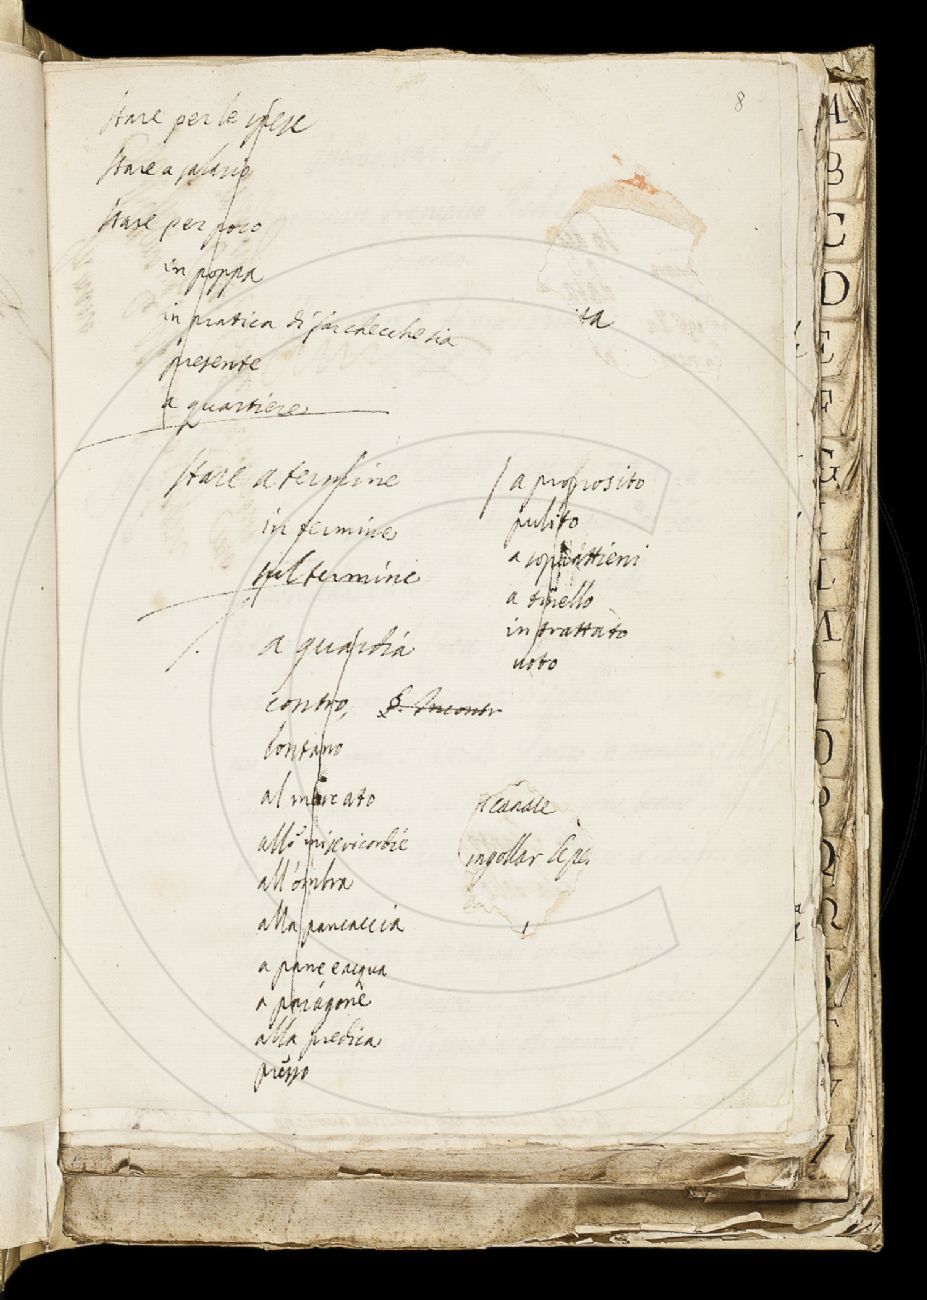 8
Stare per le spese
Stare a salario
Stare per poco
in poppa
in pratica di far checchesia
presente
a quartiere
Stare a termine
in termine
sul termine
a guardia
contro, S. Incontr
lontano
al mercato
alle misericordie
all'ombra
alla pancaccia
a pane e acqua
a paragone
alla predica
presso
a proposito
pulito
a soprattieni
a tinello
in trattato
uoto
ita
ticanale
ingollar
A
B
C
D
E
F
G
I
L
M
N
O
P
Q
R
S
T
V
Z